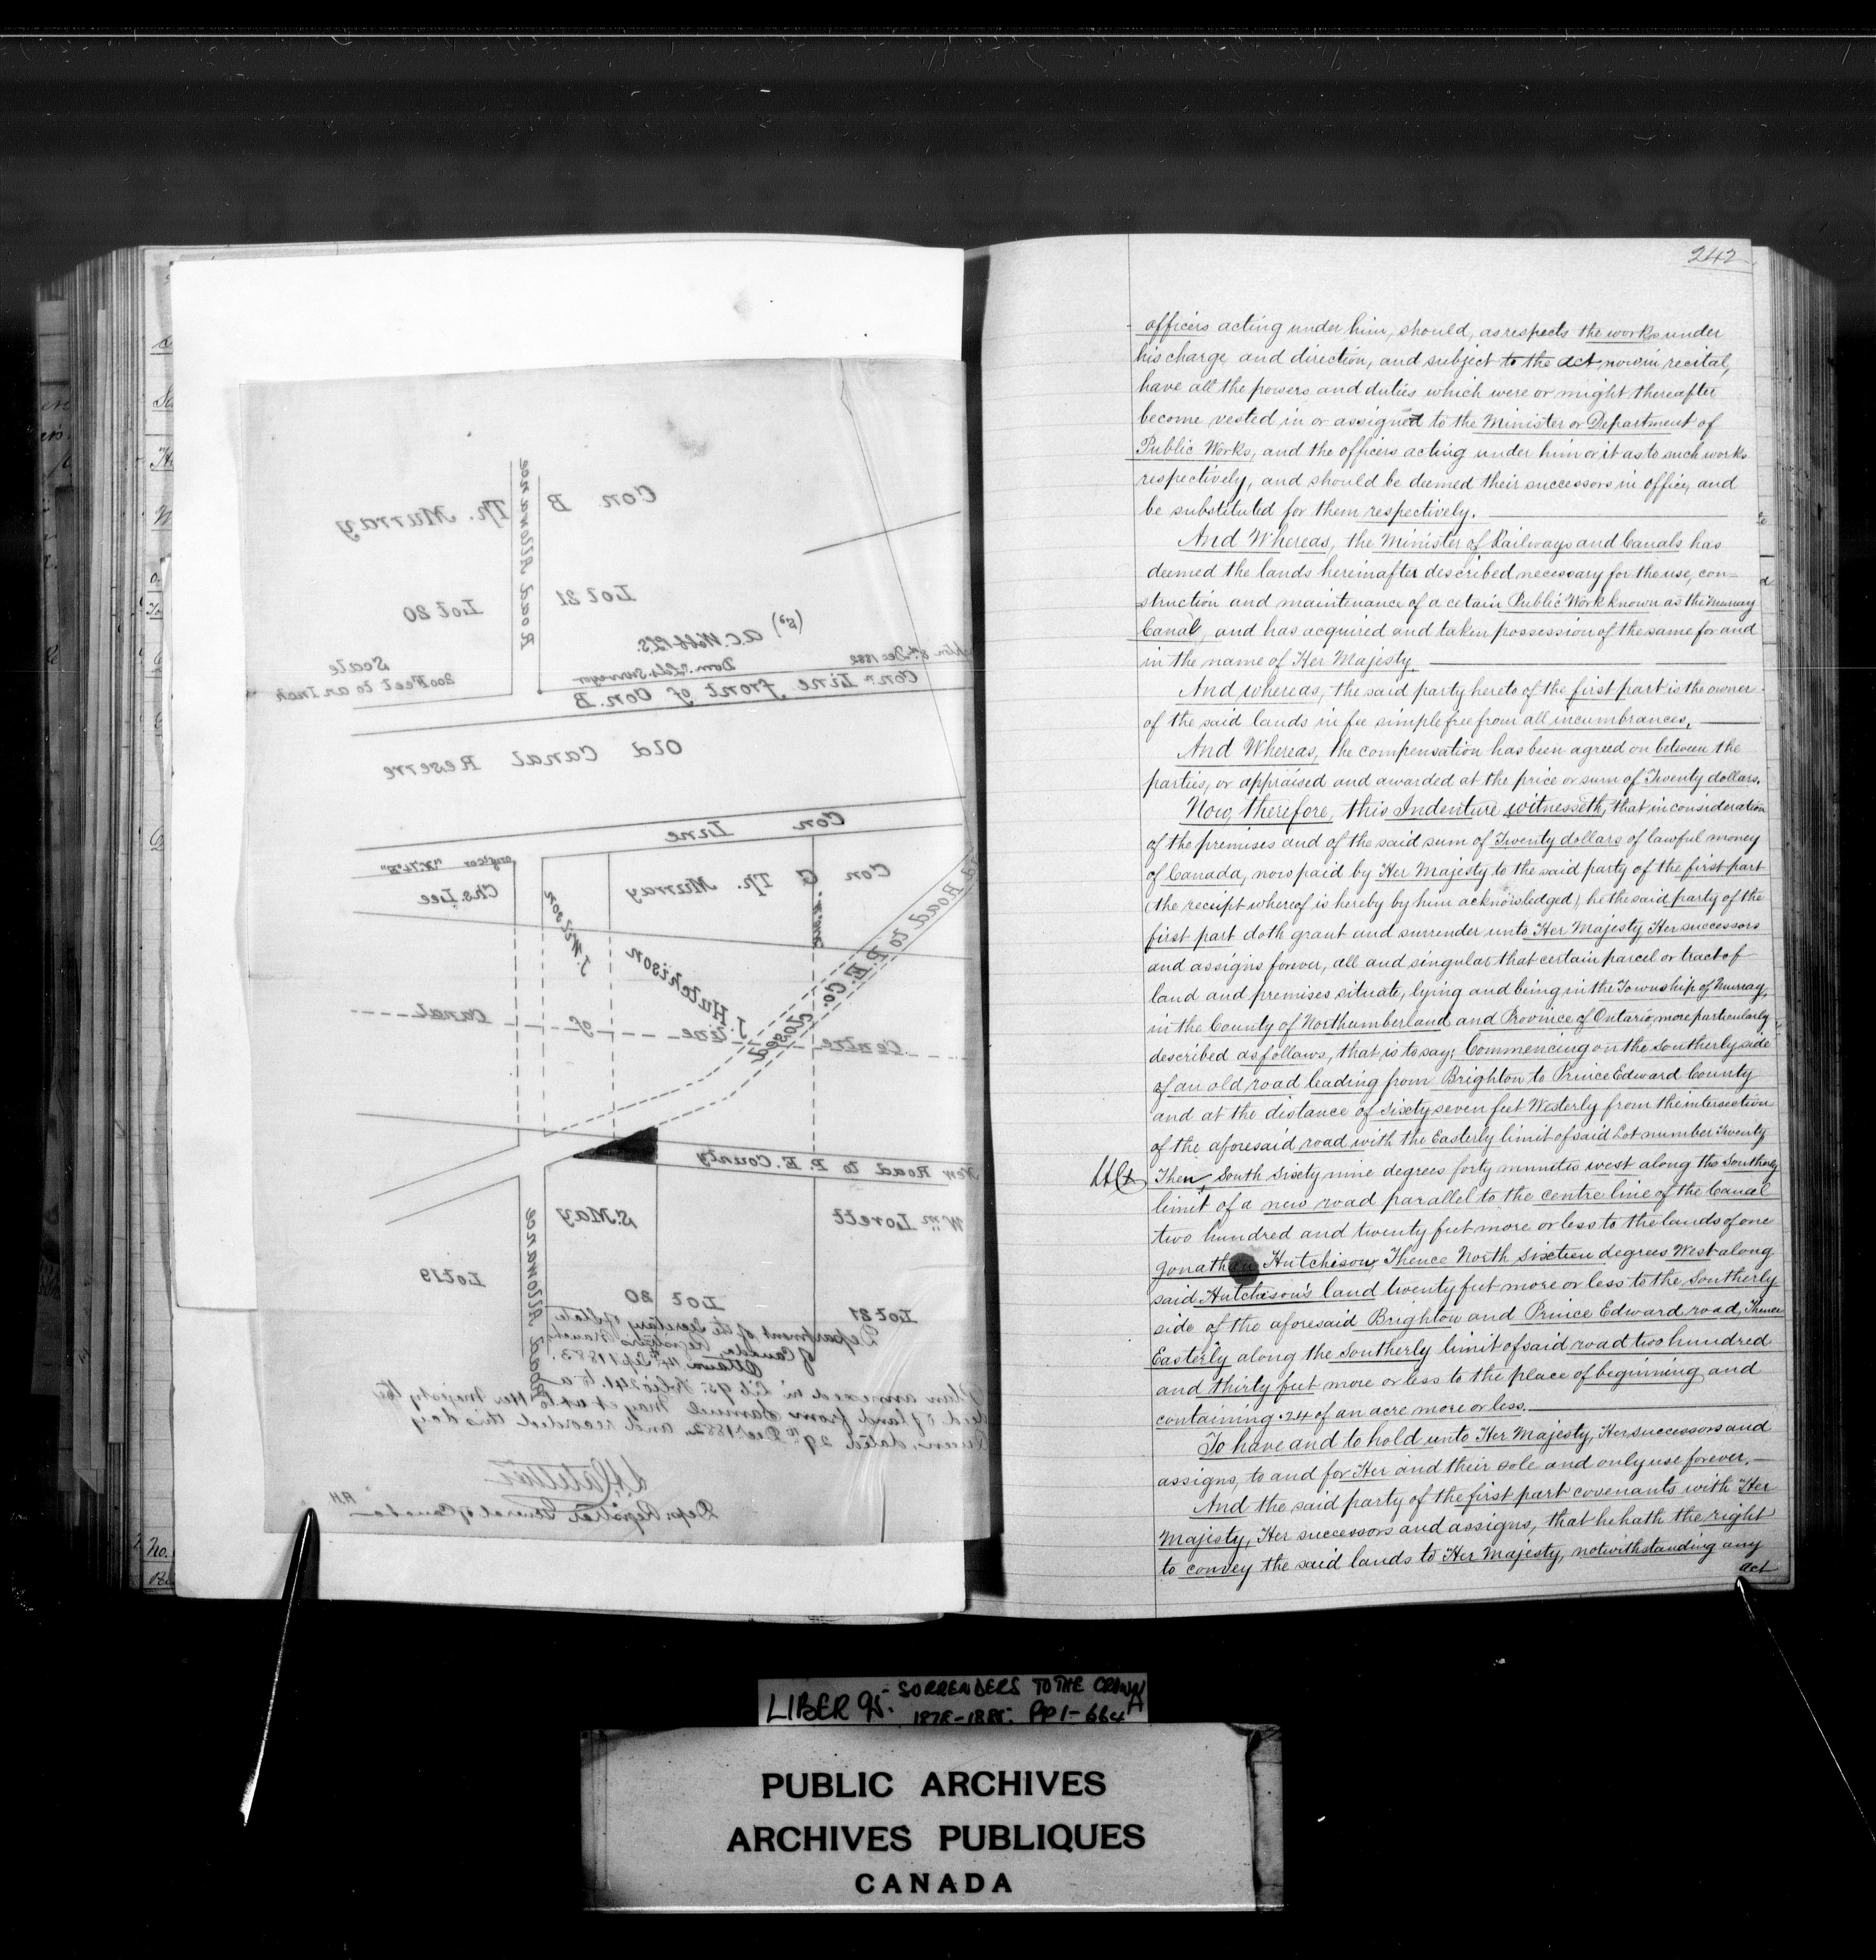 Con B
Tp. Murray
Road Allowance
Lot 21
Lot 20
(sgd)
A.C. Webb P.L.S.
Dom. Lds. Surveyor
8th Dec 1882
Scale
200 Feet to an Inch
Conn Line front of Con. B
Old Canal Reserve
Con Line
Con G Tp. Murray
Chs. Lee
J. Wesson
J. Hutchison
Road to P. E. Co.
Closed
Centre Line of Canal
New Road to P. E. County
Wm Lovett
S. May
Lot 19
Road Allowance
Lot 20
Lot 21
Department of the Secretary of State
of Canada, Registrar's Branch,
Ottawa 14th Sept 1883.
Plan annexed in Lib 95. Folio 241. to a
deed of land from Samuel May et ux to Her Majesty the
Queen, dated 29th Decr 1882, and recorded this day
Dep. Registrar General of Canada
A.H.
242
officers acting under him, should, as respects the works under
his charge and direction, and subject to the Act, now in recital,
have all the powers and duties which were or might thereafter
become vested in or assigned to the Minister or Department of
Public Works, and the officers acting under him or it as to such works
respectively, and should be deemed their successors in office, and
be substituted for them respectively.
And Whereas, the Minister of Railways and Canals has
deemed the lands hereinafter described necessary for the use, con-
struction and maintenance of a cetain Public Work known as the Murray
Canal, and has acquired and taken possession of the same for and
in the name of Her Majesty
And whereas, the said party hereto of the first part is the owner
of the said lands in fee simple free from all incumbrances,
And Whereas, the compensation has been agreed on between the
parties, or appraised and awarded at the price or sum of Twenty dollars.
Now, therefore, this Indenture witnesseth, that in consideration
of the premises and of the said sum of Twenty dollars of lawful money
of Canada, now paid by Her Majesty to the said party of the first part
(the receipt whereof is hereby by him acknowledged) he the said party of the
first part doth grant and surrender unto Her Majesty Her successors
and assigns forever, all and singular that certain parcel or tract of
land and premises situate, lying and being in the Township of Murray,
in the County of Northumberland and Province of Ontario, more particularly
described as follows, that is to say; Commencing on the Southerly side
of an old road leading from Brighton to Prince Edward County
and at the distance of sixty seven feet Westerly from the intersection
of the aforesaid road with the Easterly limit of said Lot number Twenty
Then, South Sixty nine degrees forty minutes west along the Southerly
limit of a new road parallel to the centre line of the Canal
two hundred and twenty feet more or less to the lands of one
Jonathan Hutchison; Thence North sixteen degrees West along
said Hutchison's land twenty feet more or less to the Southerly
side of the aforesaid Brighton and Prince Edward road, Thence
Easterly along the Southerly limit of said road two hundred
and thirty feet more or less to the place of beginning and
containing .24 of an acre more or less.
To have and to hold unto Her Majesty, Her successors and
assigns, to and for Her and their sole and only use forever.
And the said party of the first part covenants with Her
Majesty, Her successors and assigns, that he hath the right
to convey the said lands to Her Majesty, notwithstanding any
act
No.
LIBER 95. SURRENDERS TO THE CROWN
1878-1885. PP 1-664
PUBLIC ARCHIVES
ARCHIVES PUBLIQUES
CANADA